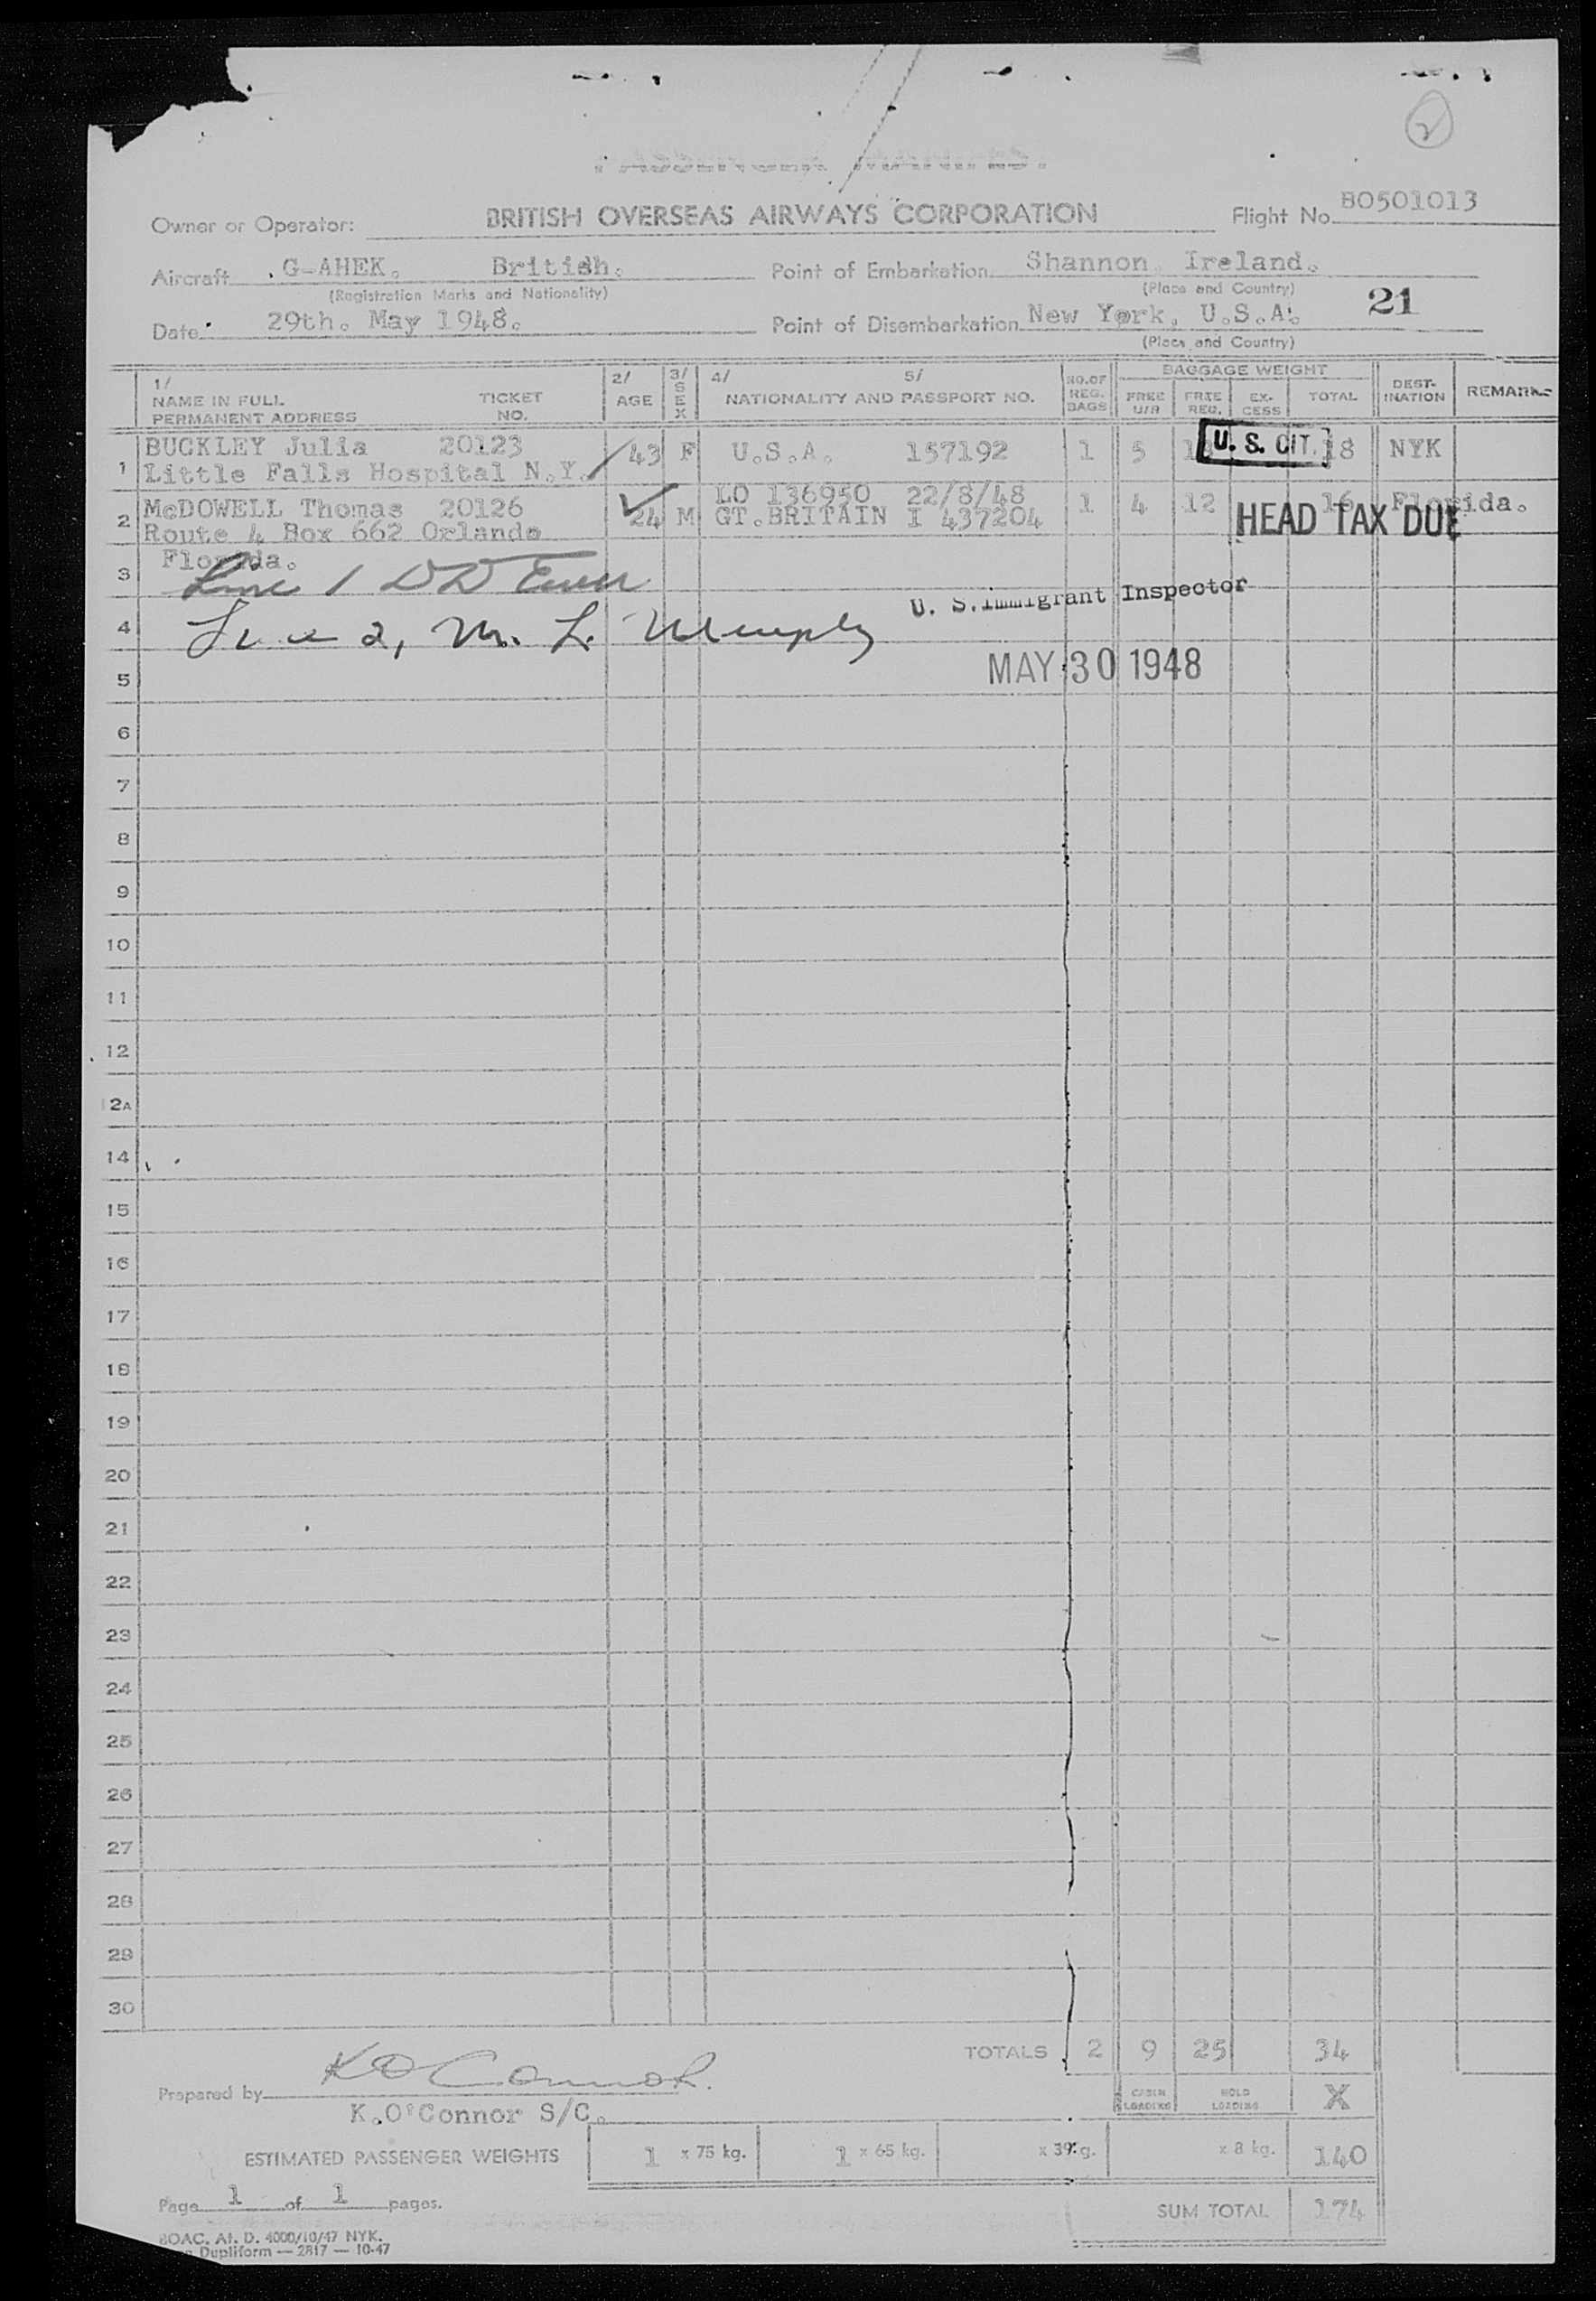 2
PASSENGER MANIFEST.
Owner or Operator: BRITISH OVERSEAS AIRWAYS CORPORATION Flight No. BO501013
Aircraft G-AHEK. British. Point of Embarkation Shannon Ireland.
(Registration Marks and Nationality) (Place and Country)
21
Date: 29th. May 1948. Point of Disembarkation New York, U.S.A.
(Place and Country)
1/ NAME IN FULL PERMANENT ADDRESS TICKET NO. 2/ AGE 3/ SEX 4/ 5/ NATIONALITY AND PASSPORT NO. NO.OF REG. BAGS BAGGAGE WEIGHT FREE U/R FREE REG. EX-CESS TOTAL DEST-INATION REMARKS
1 BUCKLEY Julia 20123 43 F U.S.A. 157192 1 5 U.S. CIT. 18 NYK
Little Falls Hospital N.Y.
LO 136950 22/8/48
2 McDOWELL Thomas 20126 24 M GT.BRITAIN I 437204 1 4 12 16 Florida.
HEAD TAX DUE
Route 4 Box 662 Orlando
Florida.
3 Line 1 DD
4 Line 2, M. L.
U. S. Immigrant Inspector
MAY 30 1948
5
6
7
8
9
10
11
12
12A
14
15
16
17
18
19
20
21
22
23
24
25
26
27
28
29
30
TOTALS 2 9 25 34
Prepared by K O'Connor.
CABIN LOADING HOLD LOADING X
K.O'Connor S/C.
ESTIMATED PASSENGER WEIGHTS 1 x 75 kg. 1 x 65 kg. x 39 kg. x 8 kg. 140
Page 1 of 1 pages.
SUM TOTAL 174
BOAC. At. D. 4000/10/47 NYK.
Dupliform — 2817 — 10-47